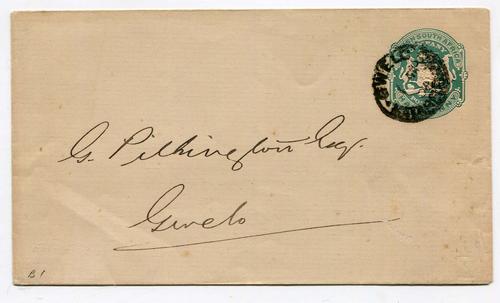 SOUTH AFRICA
GWELO
G. Pilkington Esq.
Gwelo
B1